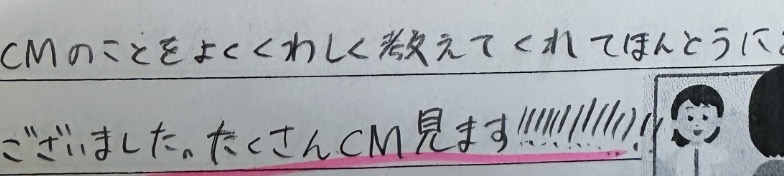 CMのことをよくくわしく教えてくれてほんとうに
ございました。たくさんCM見ます!!!!!!!!!!!!!!!!